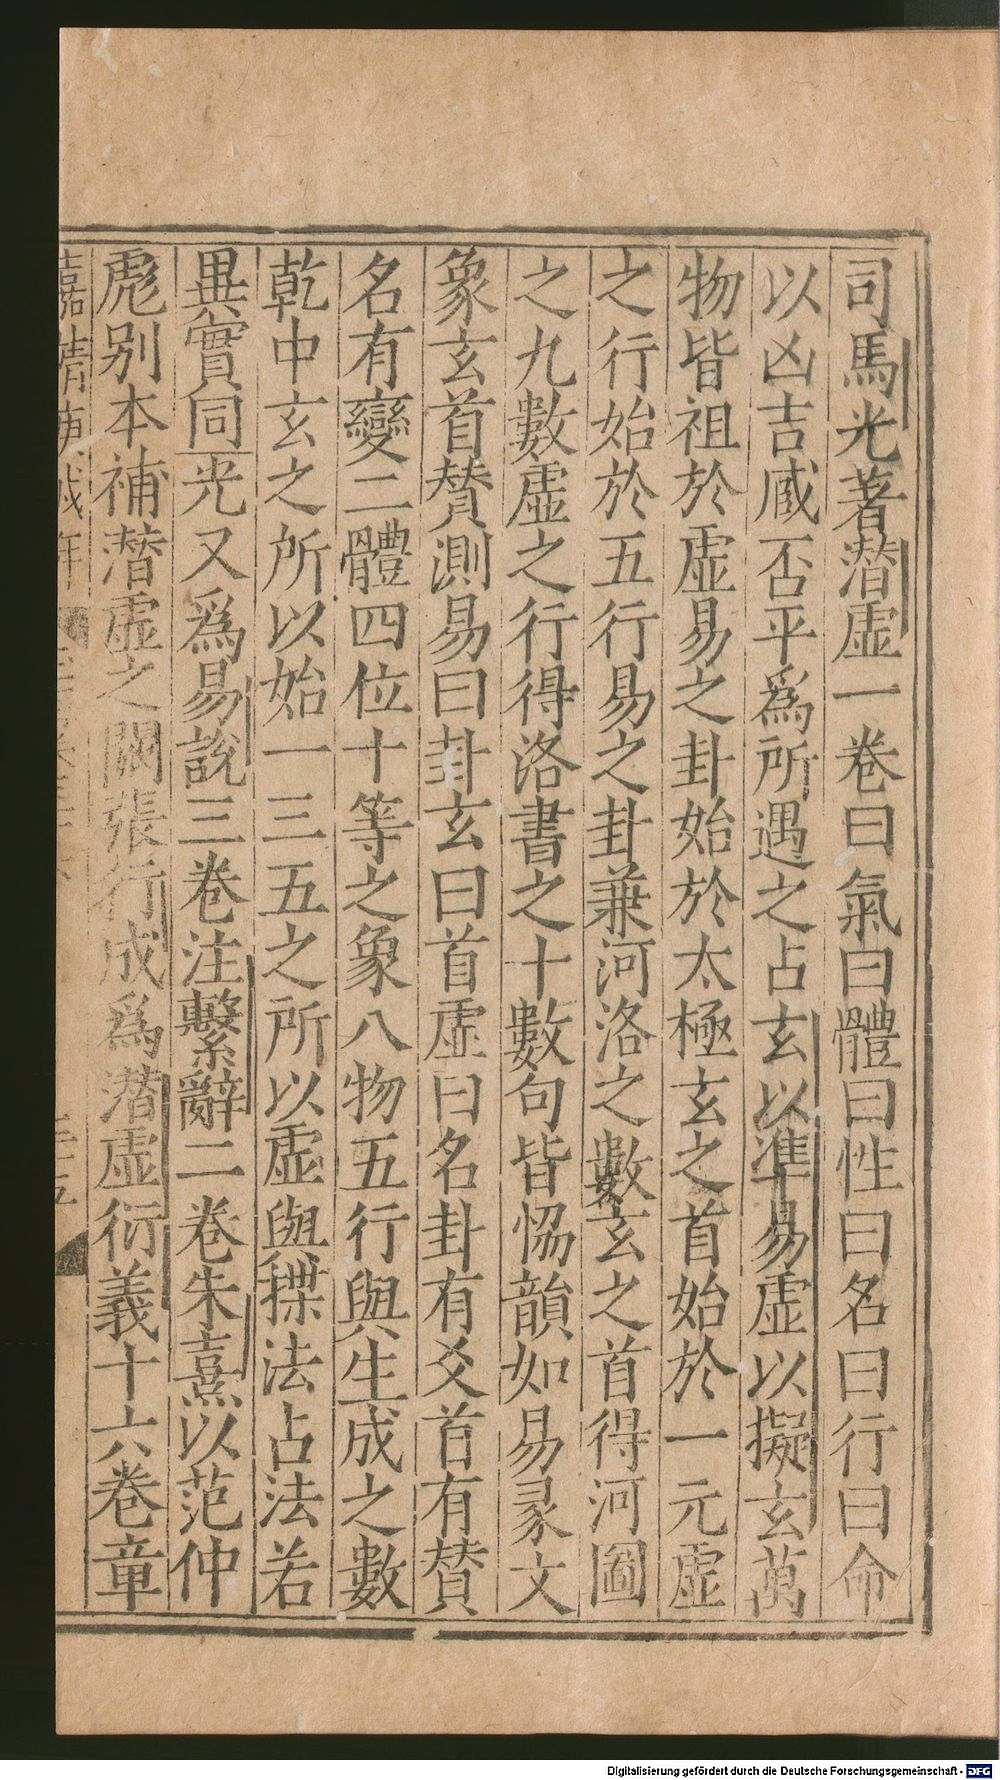 司馬光著潜虛一卷曰氣曰體曰性曰名曰行曰命
以凶吉臧否平爲所遇之占玄以準易虛以擬玄萬
物皆祖於虛易之卦始於太極玄之首始於一元虛
之行始於五行易之卦兼河洛之數玄之首得河圖
之九數虛之行得洛書之十數句皆恊韻如易彖文
象玄首賛測易曰卦玄曰首虛曰名卦有爻首有賛
名有變二體四位十等之象八物五行與生成之數
乾中玄之所以始一三五之所以虛與揲法占法若
異實同光又爲易說三卷注繫辭二卷朱熹以范仲
彪别本補潜虛之闕張行成爲潜虛衍義十六卷章
嘉靖庚戌年
三五
Digitalisierung gefördert durch die Deutsche Forschungsgemeinschaft - DFG